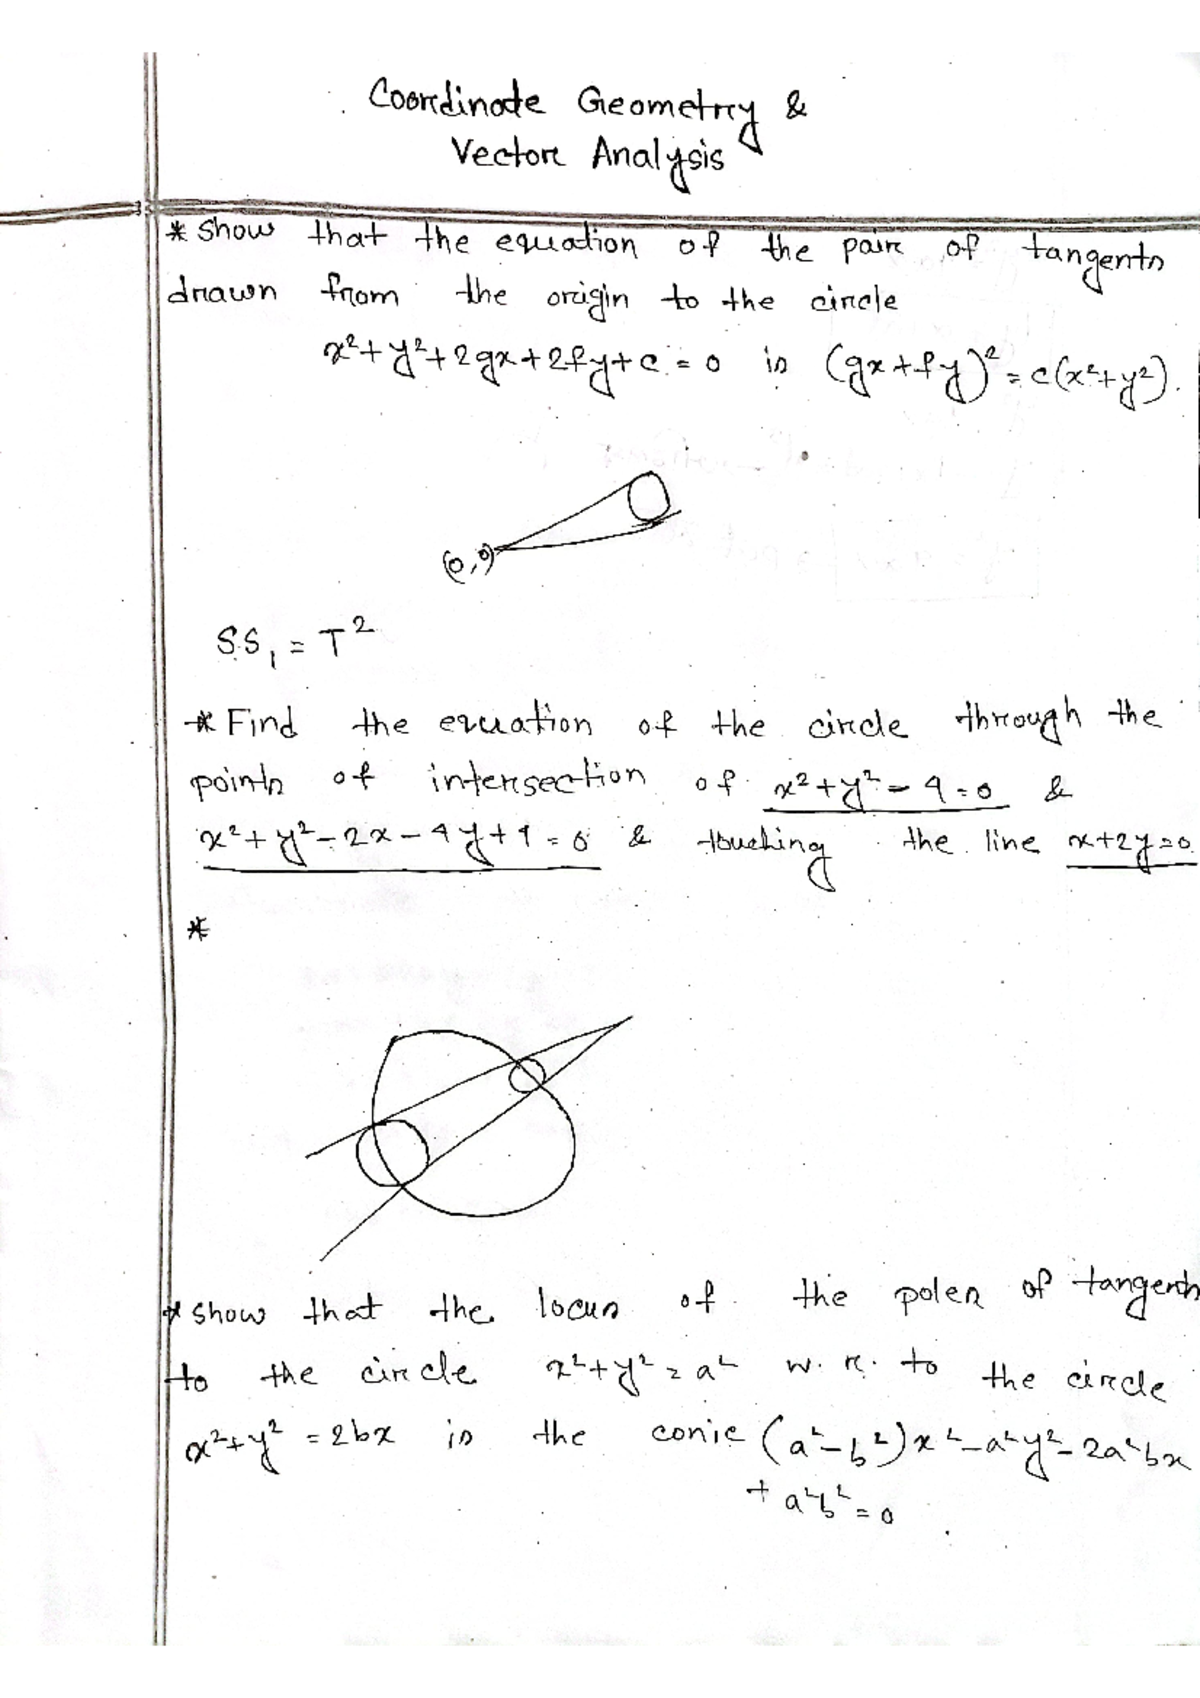 Coordinate Geometry &
Vector Analysis
* Show that the equation of the pair of tangents
drawn from the origin to the circle
x²+y²+2gx+2fy+c=0 is (gx+fy)²=c(x²+y²).
(0,0)
S.S₁ = T²
* Find the equation of the circle through the
points of intersection of x²+y²-4=0 &
x²+y²-2x-4y+4=0 & touching the line x+2y=0.
*
* show that the locus of the poles of tangents
to the circle x²+y²=a² w.r. to the circle
x²+y²=2bx is the conic (a²-b²)x²-a²y²-2a²bx
+a²b²=0.